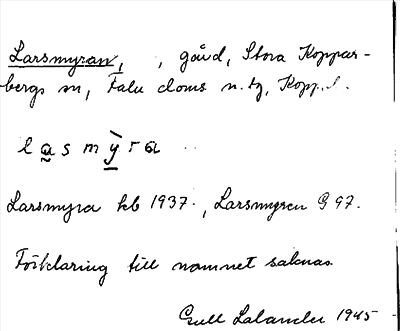 Larsmyran, , gård, Stora Koppar-
bergs sn, Falu doms n. tg, Kopp. l.
lasmỳra
Larsmyra kb 1937. , Larsmyren G 97.
Förklaring till namnet saknas.
Gull Lalander 1945